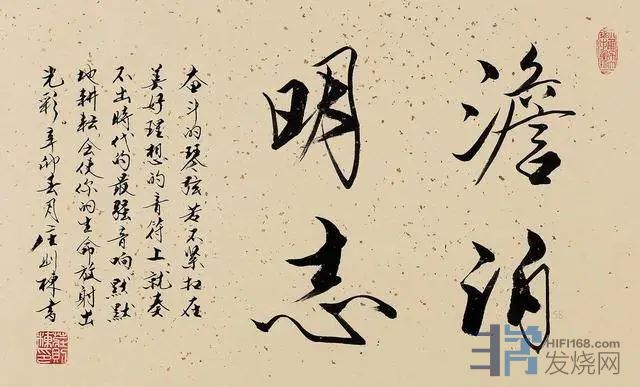 澹泊
明志
奋斗的琴弦若不紧扣在
美好理想的音符上就奏
不出時代的最强音响默默
地耕耘会使你的生命放射出
光彩 辛卯春月庄则棟书
HIFI168.com
发烧网